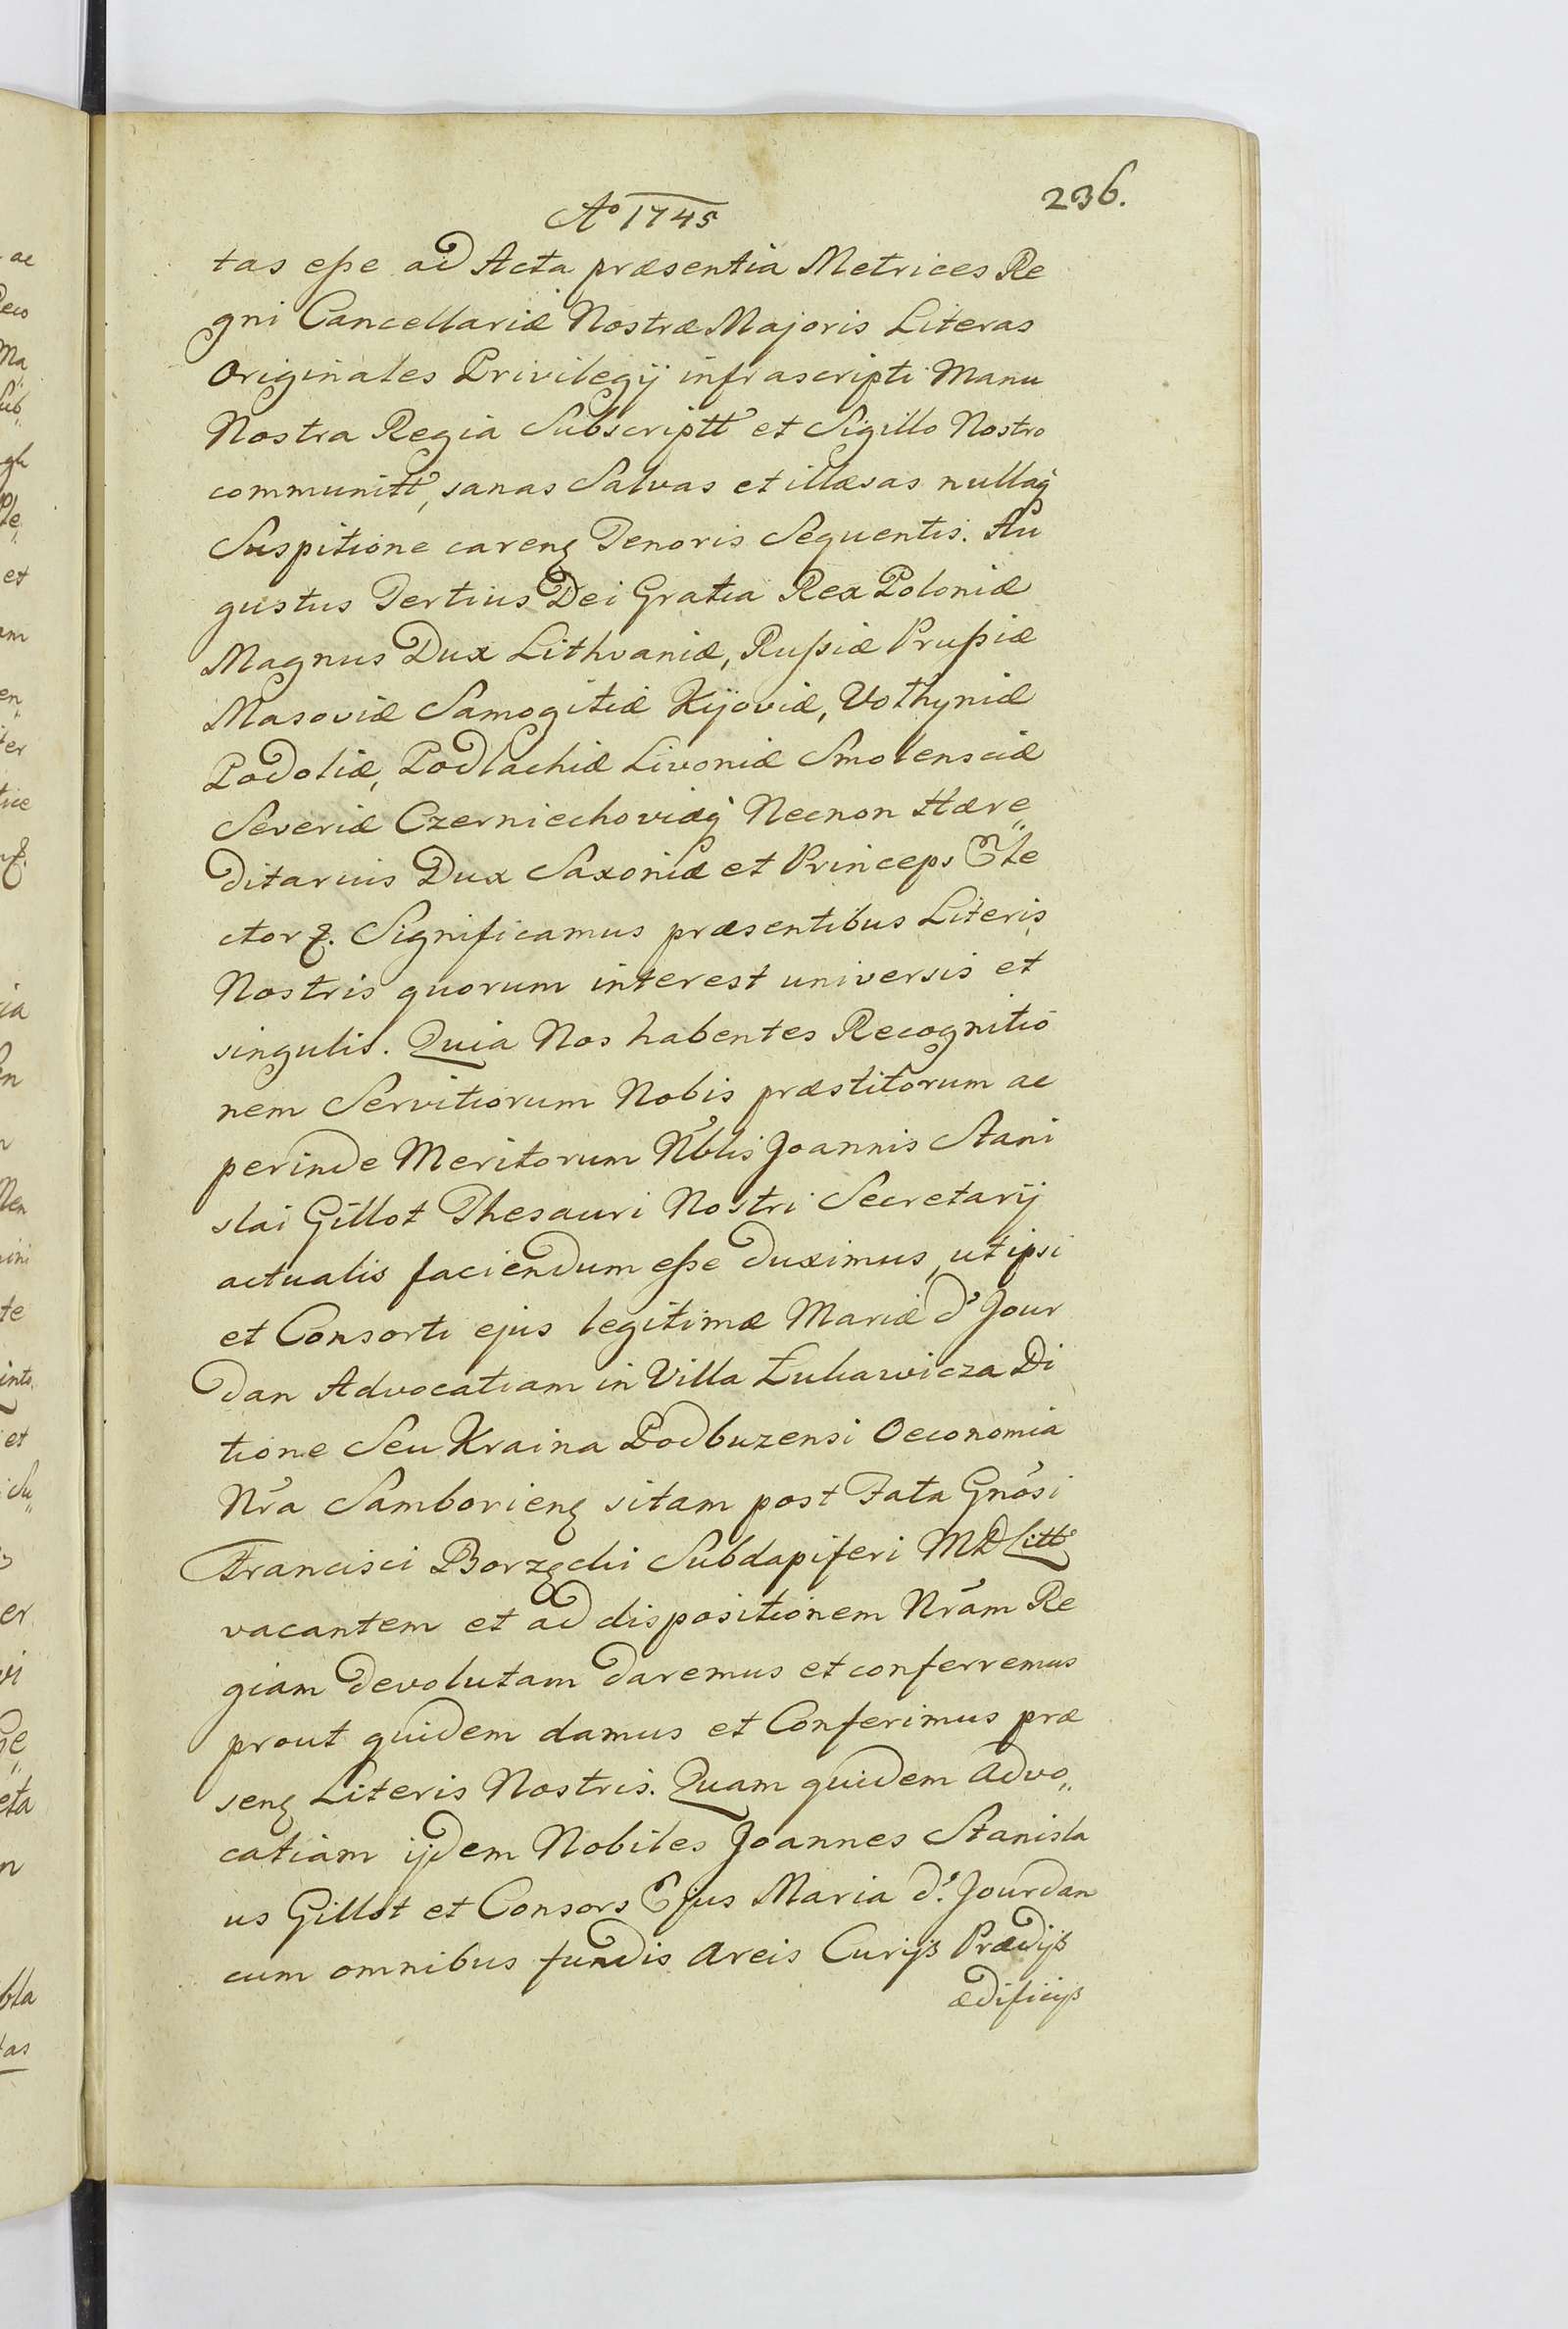 236.
Aº 1745
tas eſse ad Acta præsentia Metrices Re
gni Cancellariæ Nostræ Majoris Literas
Originales Privilegij infrascripti Manu
Nostra Regia Subscriptt et Sigillo Nostro
communitt, sanas Salvas et illæsas nullaq
Suspitione carenꝫ Tenoris Sequentis. Au
gustus Tertius Dei Gratia Rex Poloniæ
Magnus Dux Lithvaniæ, Ruſsiæ Pruſsiæ
Masoviæ Samogitiæ Kijoviæ, Volhyniæ
Podoliæ, Podlachiæ Livoniæ Smolensciæ
Severiæ Czerniechoviæq Necnon Hære„
ditarius Dux Saxoniæ et Princeps Ele
ctor &. Significamus præsentibus Literis
Nostris quorum interest universis et
singulis. Quia Nos habentes Recognitio
nem Servitiorum Nobis præstitorum ac
perinde Meritorum Nblis Joannis Stani
slai Gillot Thesauri Nostri Secretarij
actualis faciendum eſse duximus, ut ipsi
et Consorti ejus legitimæ Mariæ d' Jour
dan Advocatiam in Villa Łuhawicza Di
tione Seu Kraina Podbuzensi Oeconomia
Nra Samborienꝫ sitam post Fata Gnosi
Francisci Borzęcki Subdapiferi MD Litt
vacantem et ad dispositionem Nram Re
giam devolutam daremus et conferremus
prout quidem damus et Conferimus præ
senꝫ Literis Nostris. Quam quidem Advo„
catiam ijdem Nobiles Joannes Stanisla
us Gillot et Consors Ejus Maria d' Jourdan
cum omnibus fundis Areis Curijs Prædijs
ædificijs